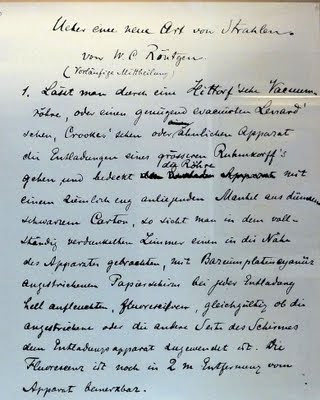 Ueber eine neue Art von Strahlen.
von W. C. Röntgen.
(Vorläufige Mittheilung)
1. Lässt man durch eine Hittorf'sche Vacuum-
röhre, oder einen genügend evacuirten Lenard'
schen, Crookes'schen oder ähnlichen Apparat
die Entladungen eines grösseren Ruhmkorff's
gehen und bedeckt die Röhre Apparat mit
einem ziemlich eng anliegenden Mantel aus dünnem
schwarzem Carton, so sieht man in dem voll-
ständig verdunkelten Zimmer einen in die Nähe
des Apparates gebrachten, mit Bariumplatincyanür
angestrichenen Papierschirm bei jeder Entladung
hell aufleuchten, fluoresciren, gleichgültig ob die
angestrichene oder die andere Seite des Schirmes
dem Entladungsapparat zugewendet ist. Die
Fluorescenz ist noch in 2 m Entfernung vom
Apparat bemerkbar.